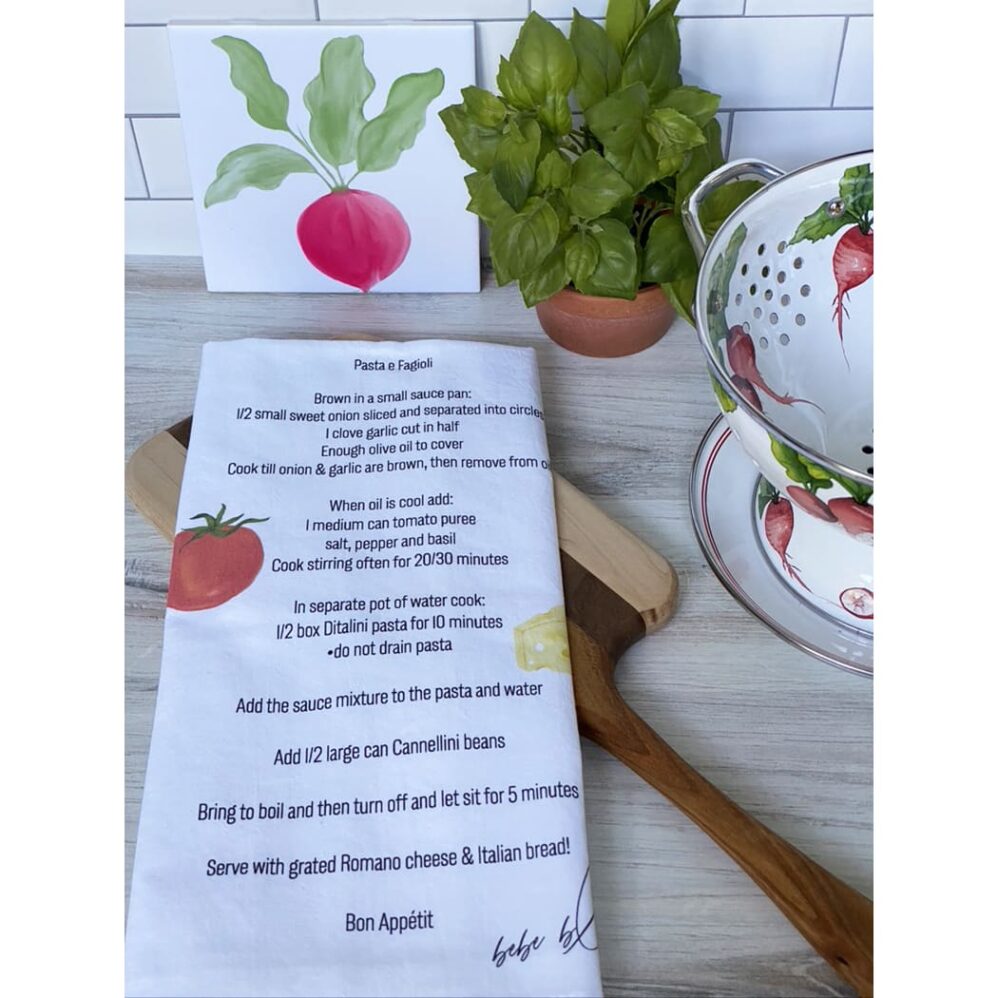 Pasta e Fagioli
Brown in a small sauce pan:
1/2 small sweet onion sliced and separated into circles
1 clove garlic cut in half
Enough olive oil to cover
Cook till onion & garlic are brown, then remove from
When oil is cool add:
1 medium can tomato puree
salt, pepper and basil
Cook stirring often for 20/30 minutes
In separate pot of water cook:
1/2 box Ditalini pasta for 10 minutes
•do not drain pasta
Add the sauce mixture to the pasta and water
Add 1/2 large can Cannellini beans
Bring to boil and then turn off and let sit for 5 minutes
Serve with grated Romano cheese & Italian bread!
Bon Appétit
bebe